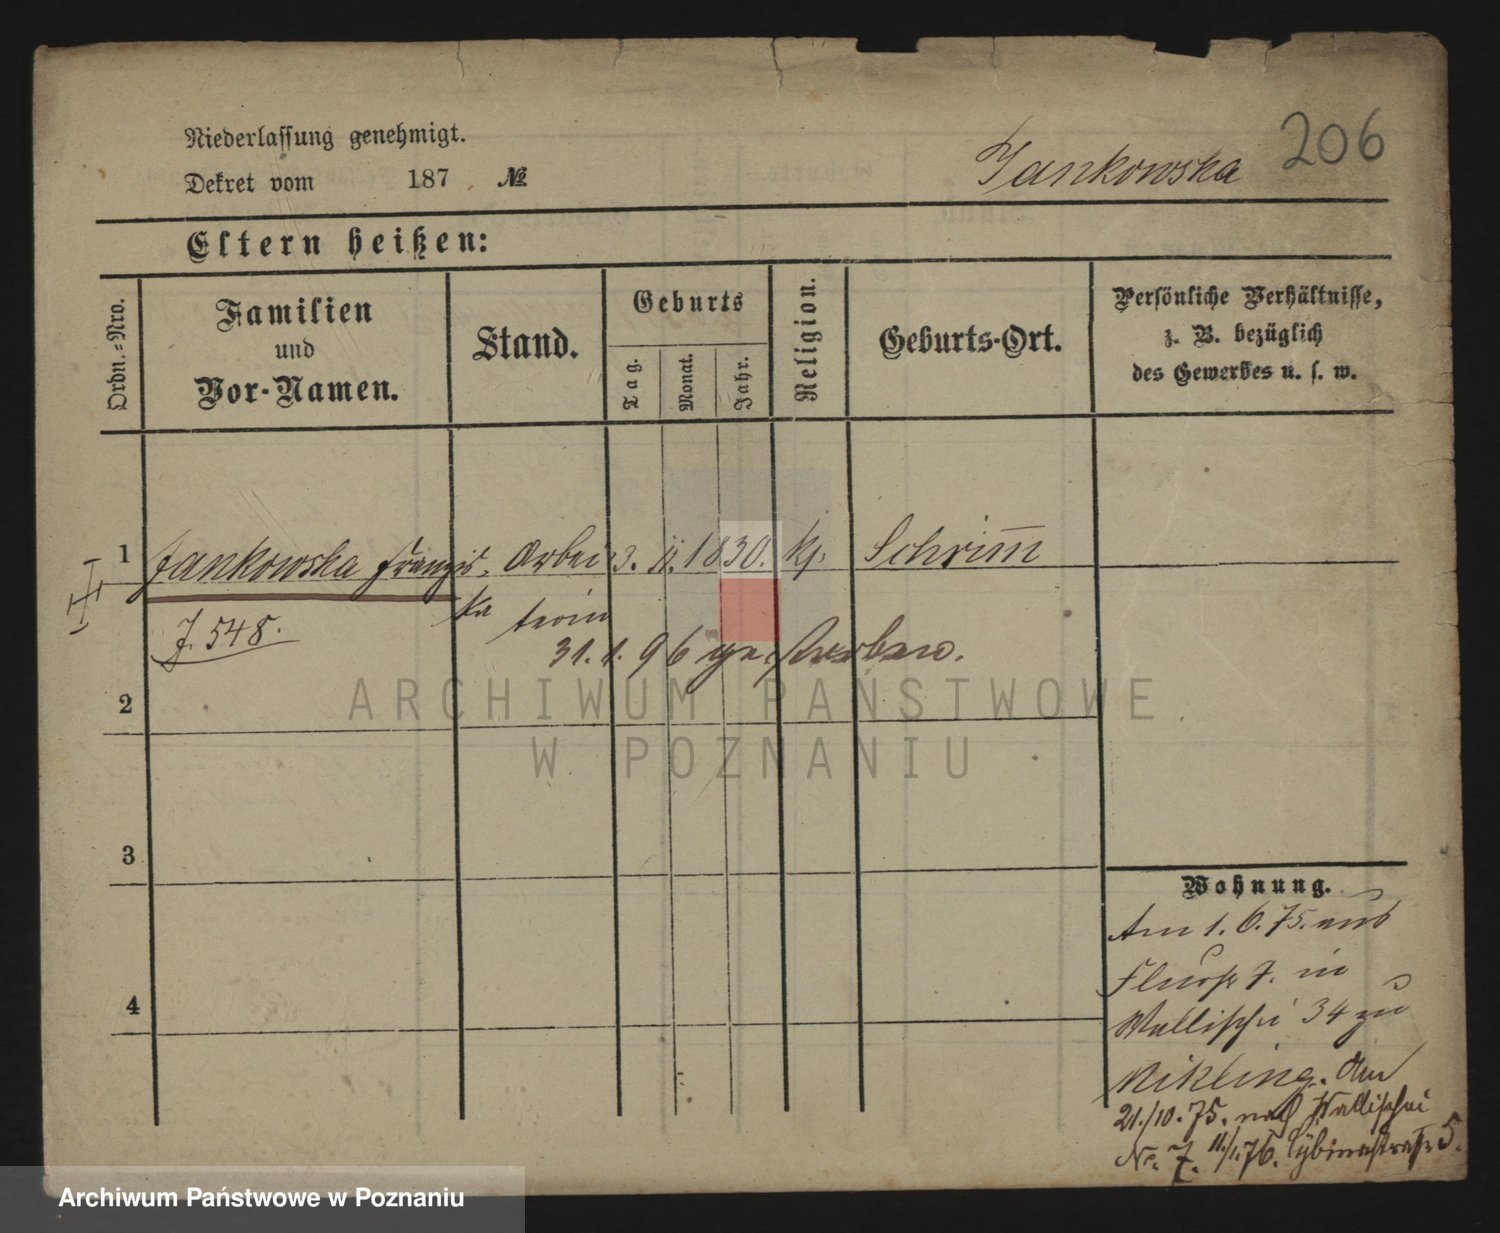 Niederlassung genehmigt.
Dekret vom 187 . №
Jankowska 206
Eltern heißen:
Ordn.-Nro.
Familien
und
Vor-Namen.
Stand.
Geburts
Tag.
Monat.
Jahr.
Religion.
Geburts-Ort.
Persönliche Verhältnisse,
z. B. bezüglich
des Gewerbes u. s. w.
1 Jankowska Franzis- Arbei 3. 11. 1830. kj. Schrimm
ka terin
J. 548.
31. 1. 96 gestorben.
2
3
4
Wohnung.
Am 1. 6. 75. aus
7. in
Wallischei 34 zu
Nikling. Am
21./10. 75. nach Wallischei
No. 7. 11./1. 76. Cybinastraße 5.
ARCHIWUM PAŃSTWOWE
W POZNANIU
Archiwum Państwowe w Poznaniu